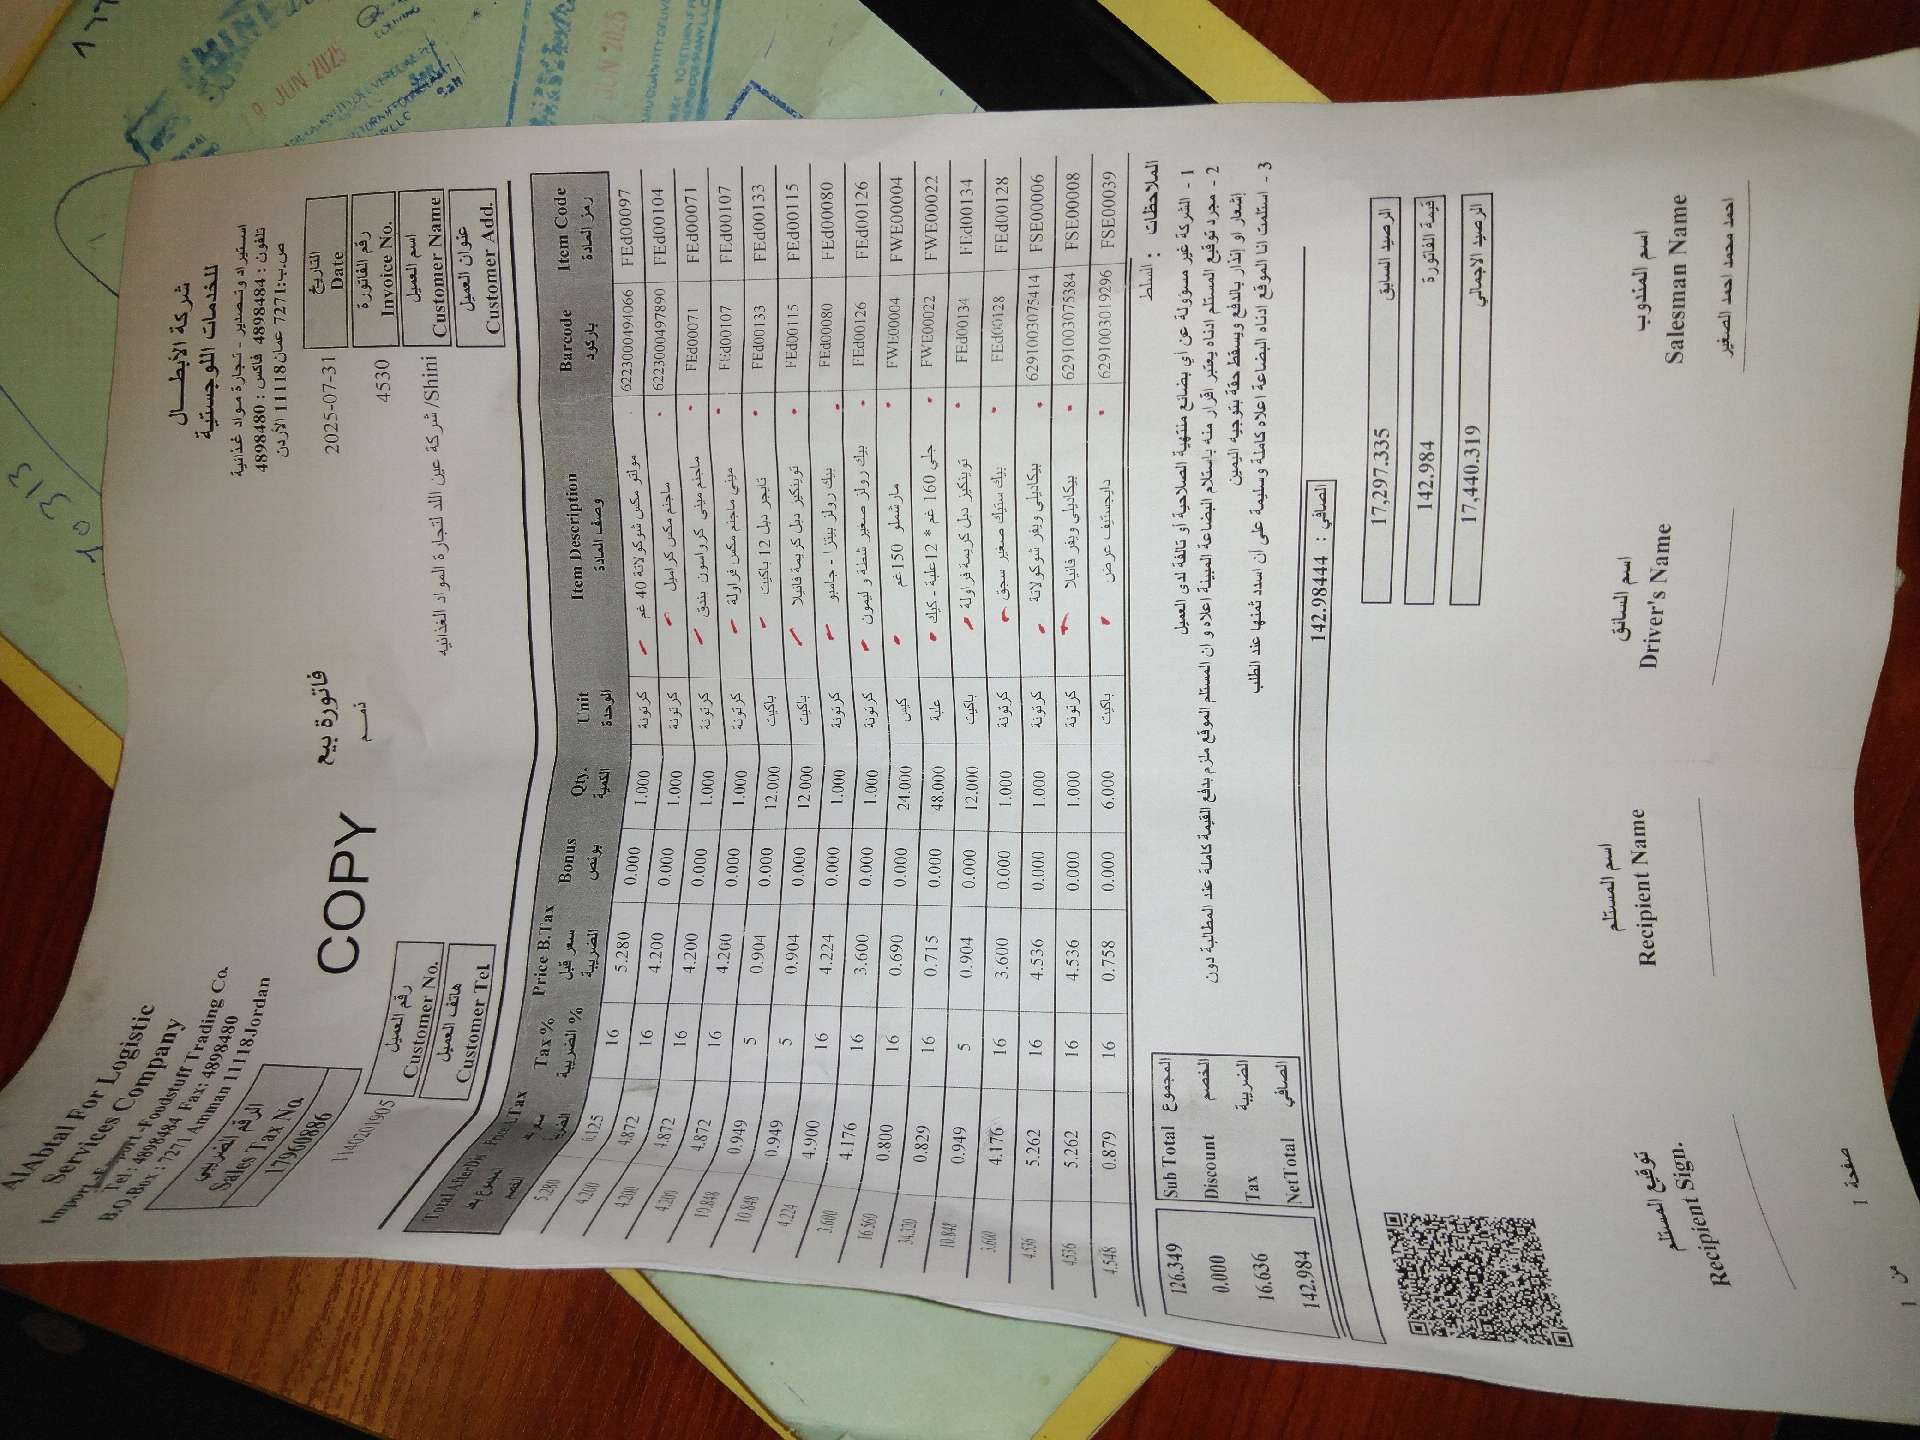 AlAbtal For Logistic
Services Company
Import-Export-Foodstuff Trading Co.
Tel : 4898484 Fax: 4898480
B.O.Box : 7271 Amman 11118.Jordan
شركة الأبطــال
للخدمات اللوجستية
استيراد وتصدير - تجارة مواد غذائية
تلفون : 4898484 فاكس : 4898480
ص.ب:7271 عمان11118 الأردن
الرقم الضريبي
Sales Tax No.
17960886
COPY
فاتورة بيع
ذمــم
2025-07-31
التاريخ
Date
4530
رقم الفاتورة
Invoice No.
1140201905
رقم العميل
Customer No.
شركة عين اللد لتجارة المواد الغذائيه/Shini
اسم العميل
Customer Name
هاتف العميل
Customer Tel
عنوان العميل
Customer Add.
Total Afterdis Price A.Tax Tax % Price B.Tax Bonus Qty. Unit Item Description Barcode Item Code
الضريبة % سعر قبل الضريبة بونص الكمية الوحدة وصف المادة باركود رمز المادة
5.280 6.125 16 5.280 0.000 1.000 كرتونة مولتو مكس شوكولاتة 40 غم 6223000494066 FEd00097
4.200 4.872 16 4.200 0.000 1.000 كرتونة ماجنم مكس كراميل 6223000497890 FEd00104
4.200 4.872 16 4.200 0.000 1.000 كرتونة ماجنم ميني كرواسون بندق FEd00071 FEd00071
4.200 4.872 16 4.200 0.000 1.000 كرتونة ميني ماجنم مكس فراولة FEd00107 FEd00107
10.848 0.949 5 0.904 0.000 12.000 باكيت تايجر دبل 12 باكيت FEd00133 FEd00133
10.848 0.949 5 0.904 0.000 12.000 باكيت توينكيز دبل كريمة فانيلا FEd00115 FEd00115
4.224 4.900 16 4.224 0.000 1.000 كرتونة بيك رولز بيتزا - جامبو FEd00080 FEd00080
3.600 4.176 16 3.600 0.000 1.000 كرتونة بيك رولز صغير شطة و ليمون FEd00126 FEd00126
16.560 0.800 16 0.690 0.000 24.000 كيس مارشملو 150 غم FWE00004 FWE00004
34.320 0.829 16 0.715 0.000 48.000 علبة جلي 160 غم * 12 علبة - كيك FWE00022 FWE00022
10.848 0.949 5 0.904 0.000 12.000 باكيت توينكيز دبل كريمة فراولة FEd00134 FEd00134
3.600 4.176 16 3.600 0.000 1.000 كرتونة بيك ستيك صغير سجق FEd00128 FEd00128
4.536 5.262 16 4.536 0.000 1.000 كرتونة بيكاديلي ويفر شوكولاتة 6291003075414 FSE00006
4.536 5.262 16 4.536 0.000 1.000 كرتونة بيكاديلي ويفر فانيلا 6291003075384 FSE00008
4.548 0.879 16 0.758 0.000 6.000 باكيت دايجستيف عرض 6291003019296 FSE00039
الملاحظات : السلط
1 - الشركة غير مسؤولة عن أي بضائع منتهية الصلاحية أو تالفة لدى العميل
2 - مجرد توقيع المستلم ادناه يعتبر اقرار منه باستلام البضاعة المبينة اعلاه و ان المستلم الموقع ملزم بدفع القيمة كاملة عند المطالبة دون
إشعار او إنذار بالدفع ويسقط حقة بتوجيه اليمين
3 - استلمت انا الموقع ادناه البضاعة اعلاه كاملة وسليمة على ان اسدد ثمنها عند الطلب
126.349 Sub Total المجموع
0.000 Discount الخصم
16.636 Tax الضريبية
142.984 NetTotal الصافي
الصافي : 142.98444
17,297.335 الرصيد السابق
142.984 قيمة الفاتورة
17,440.319 الرصيد الاجمالي
توقيع المستلم
Recipient Sign.
اسم المستلم
Recipient Name
اسم السائق
Driver's Name
اسم المندوب
Salesman Name
احمد محمد احمد الصغير
صفحة 1
من 1
9 JUN 2025
JUN 2025